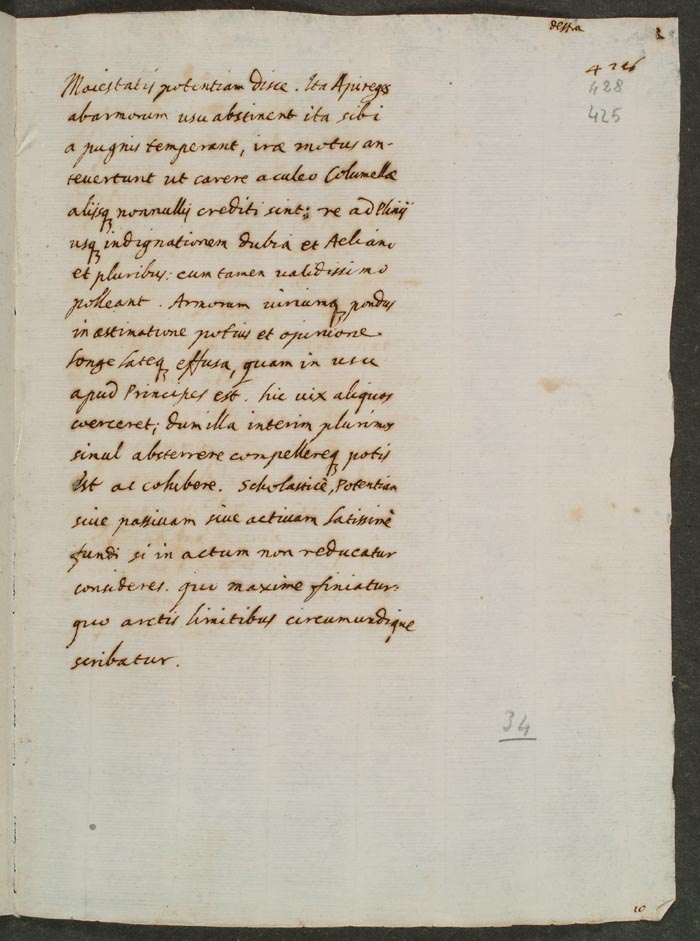 dessa
4226
428
425
Maiestatis potentiam disce. Ita Apu reges
ab armorum usu abstinent ita sibi
a pugnis temperant, iræ motus an-
tevertunt ut carere aculeo Columellæ
alijsq nonnullis crediti sint; re ad Plinij
usq indignationem dubia et Aeliano
et pluribus: cum tamen validissimo
polleant. Armorum viriumq pondus
in æstimatione potius et opinione
longe lateq effusa, quam in usu
apud Principes est. hic vix aliquos
coerceret; dum illa interim plurimos
simul absterrere compellereq potis
est ac cohibere. Scholasticè, Potentiam
sive passivam sive activam latissimè
fundi si in actum non reducatur
consideres. quo maxime finiatur:
quo arctis limitibus circumundique
scribatur.
34
10